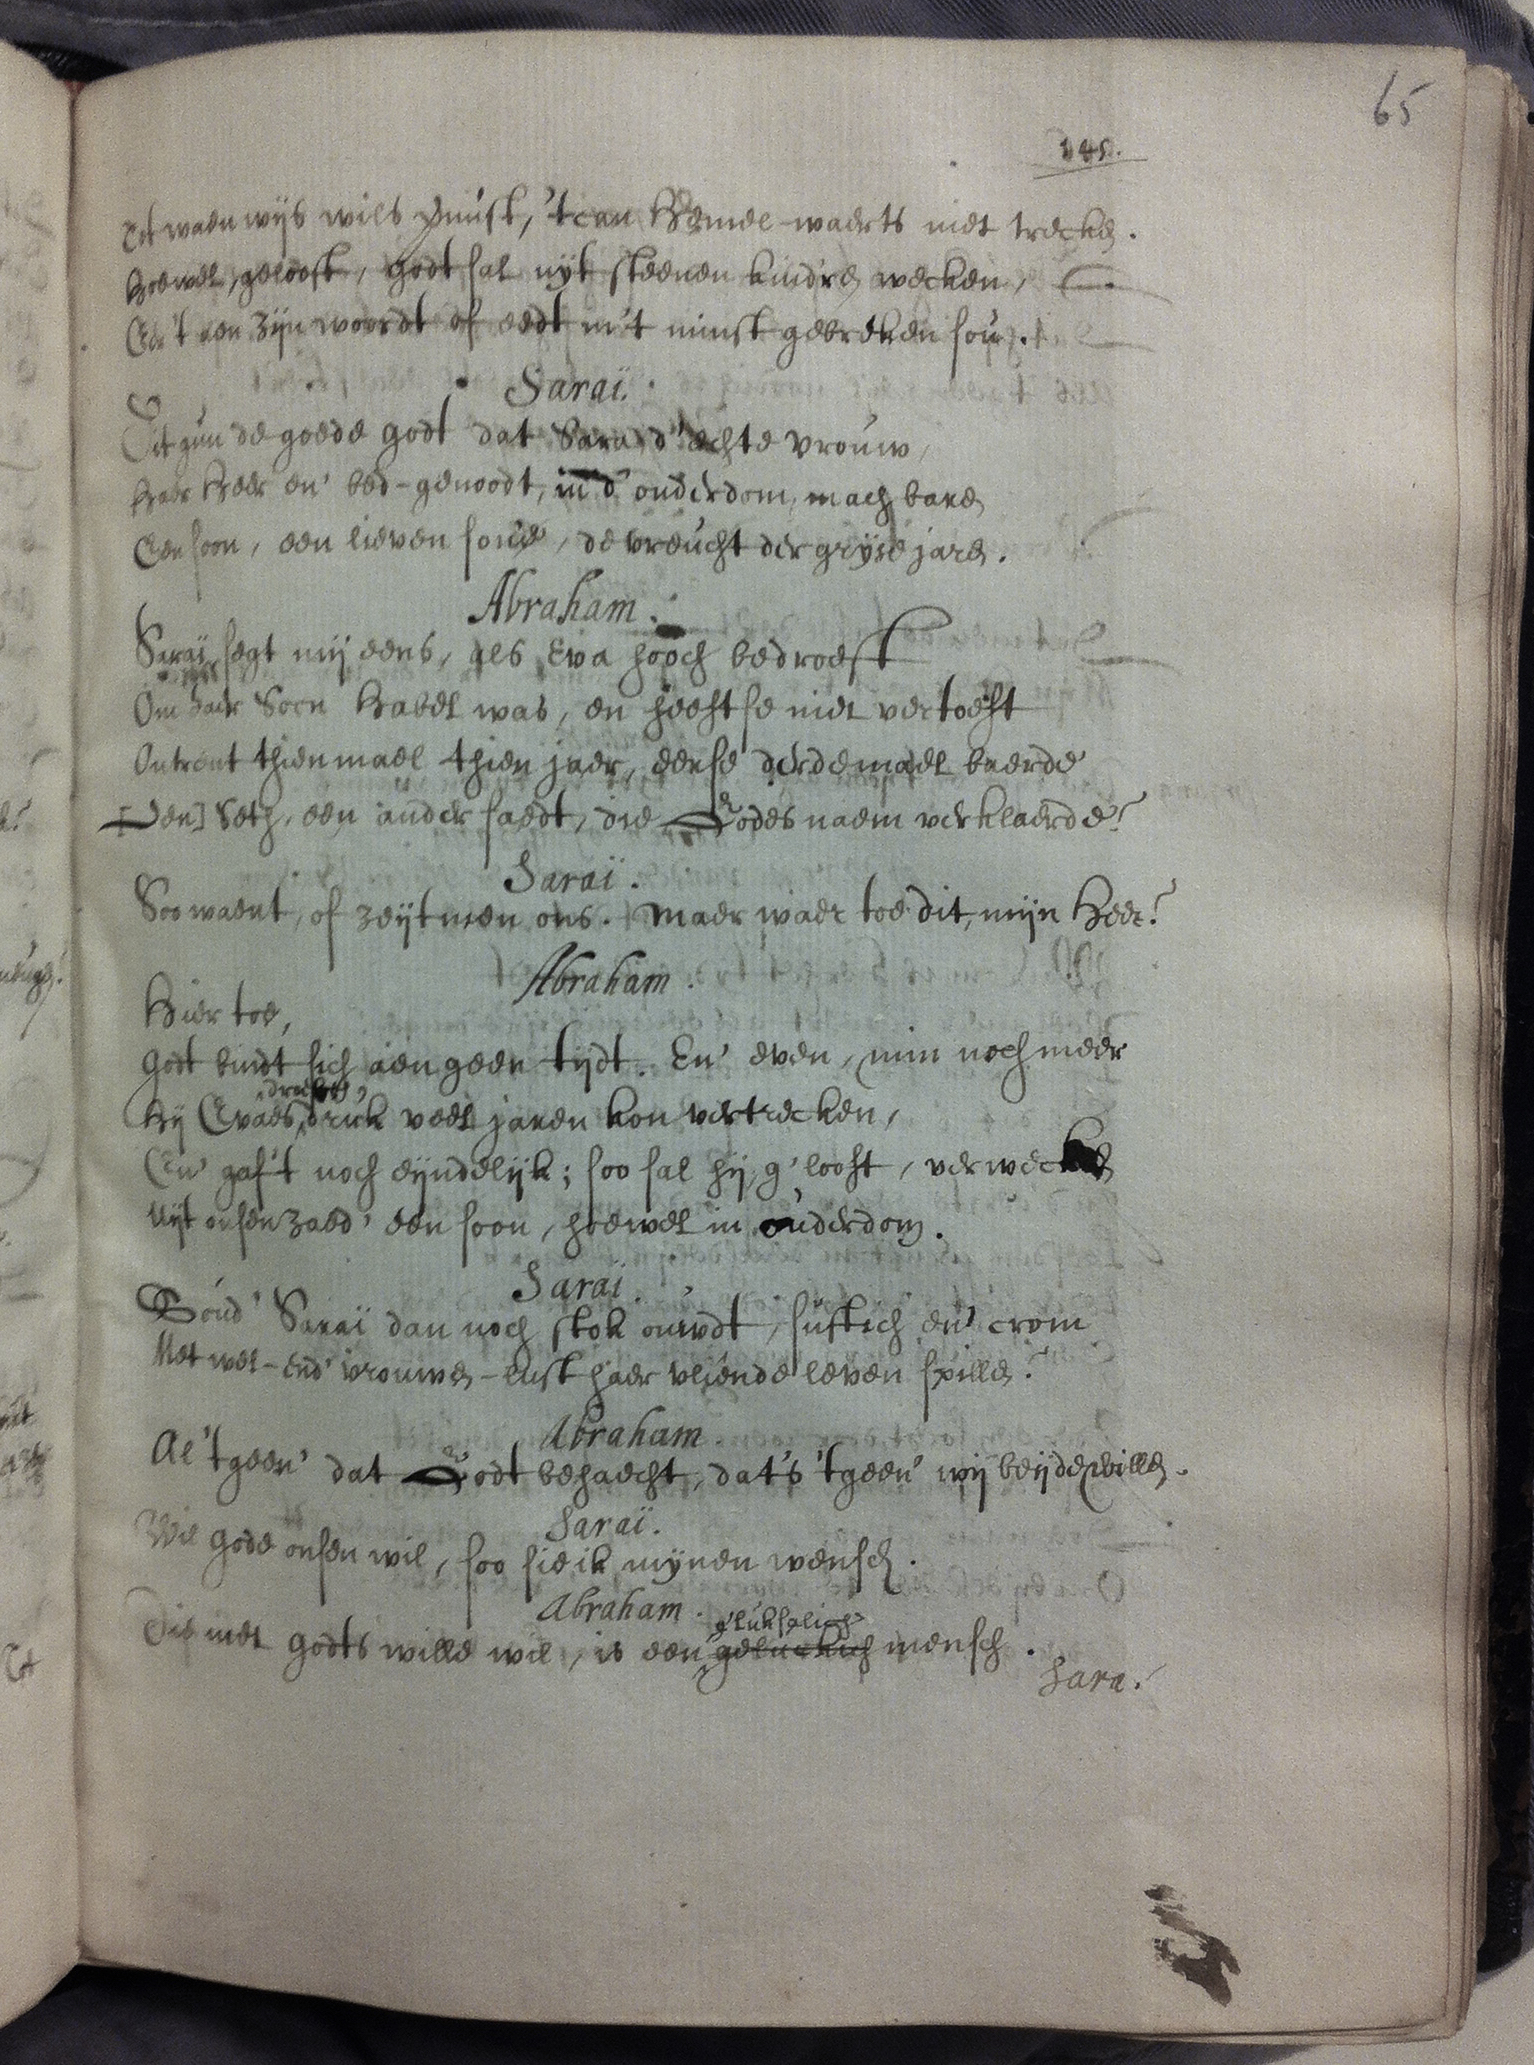 65
145.
Dit waen wijs wils gunst, 't can Hemel-waerts niet trecken.
Hoewel, gelooft, Godt sal uyt steenen kindren wecken,
Eer 't aen zijn woordt of eedt in 't minst gebreken sou.
Saraï.
Dit gun de goede Godt dat Sara d' echte vrouw,
Haer Heer en' bed-genoodt, in d' ouderdom, mach baren
Een soon, een lieven soone, de vreucht der gryse jaren.
Abraham.
Saraï segt mij eens, als Eva hooch bedroeft
Om haer Soon Habel was, en heeftse niet vertoeft
Ontrent thienmael thien jaer, eerse derdemael baerde
[Den] Seth, een ander saedt, die Godes naem verklaerde?
Saraï.
Soo waent, of zeijt men ons. Maer waer toe dit, mijn Heer?
Abraham.
Hier toe,
Godt bindt sich aen geen tijdt. En' even, min noch meer
Hij Evaes druk veel jaren kon vertrecken,
En' gaf't noch eyndelijk; soo sal hij, g'looft, verwecken
Uijt onsen zaed' een soon, hoewel in ouderdom.
Sarai.
Soud' Saraï dan noch stok ouwdt, suftich en' crom
Met wel-end' vrouwen-lust haer vliende leven spillen?
Abraham
Al 't geen' dat Godt behaecht, dat's 't geen' wij beijde willen.
Saraï.
Wil Gode onsen wil, soo sie ik mijnen wensch.
Abraham.
g'lukſalich
Die met Godts wille wil, is een geluckich mensch.
Sara.